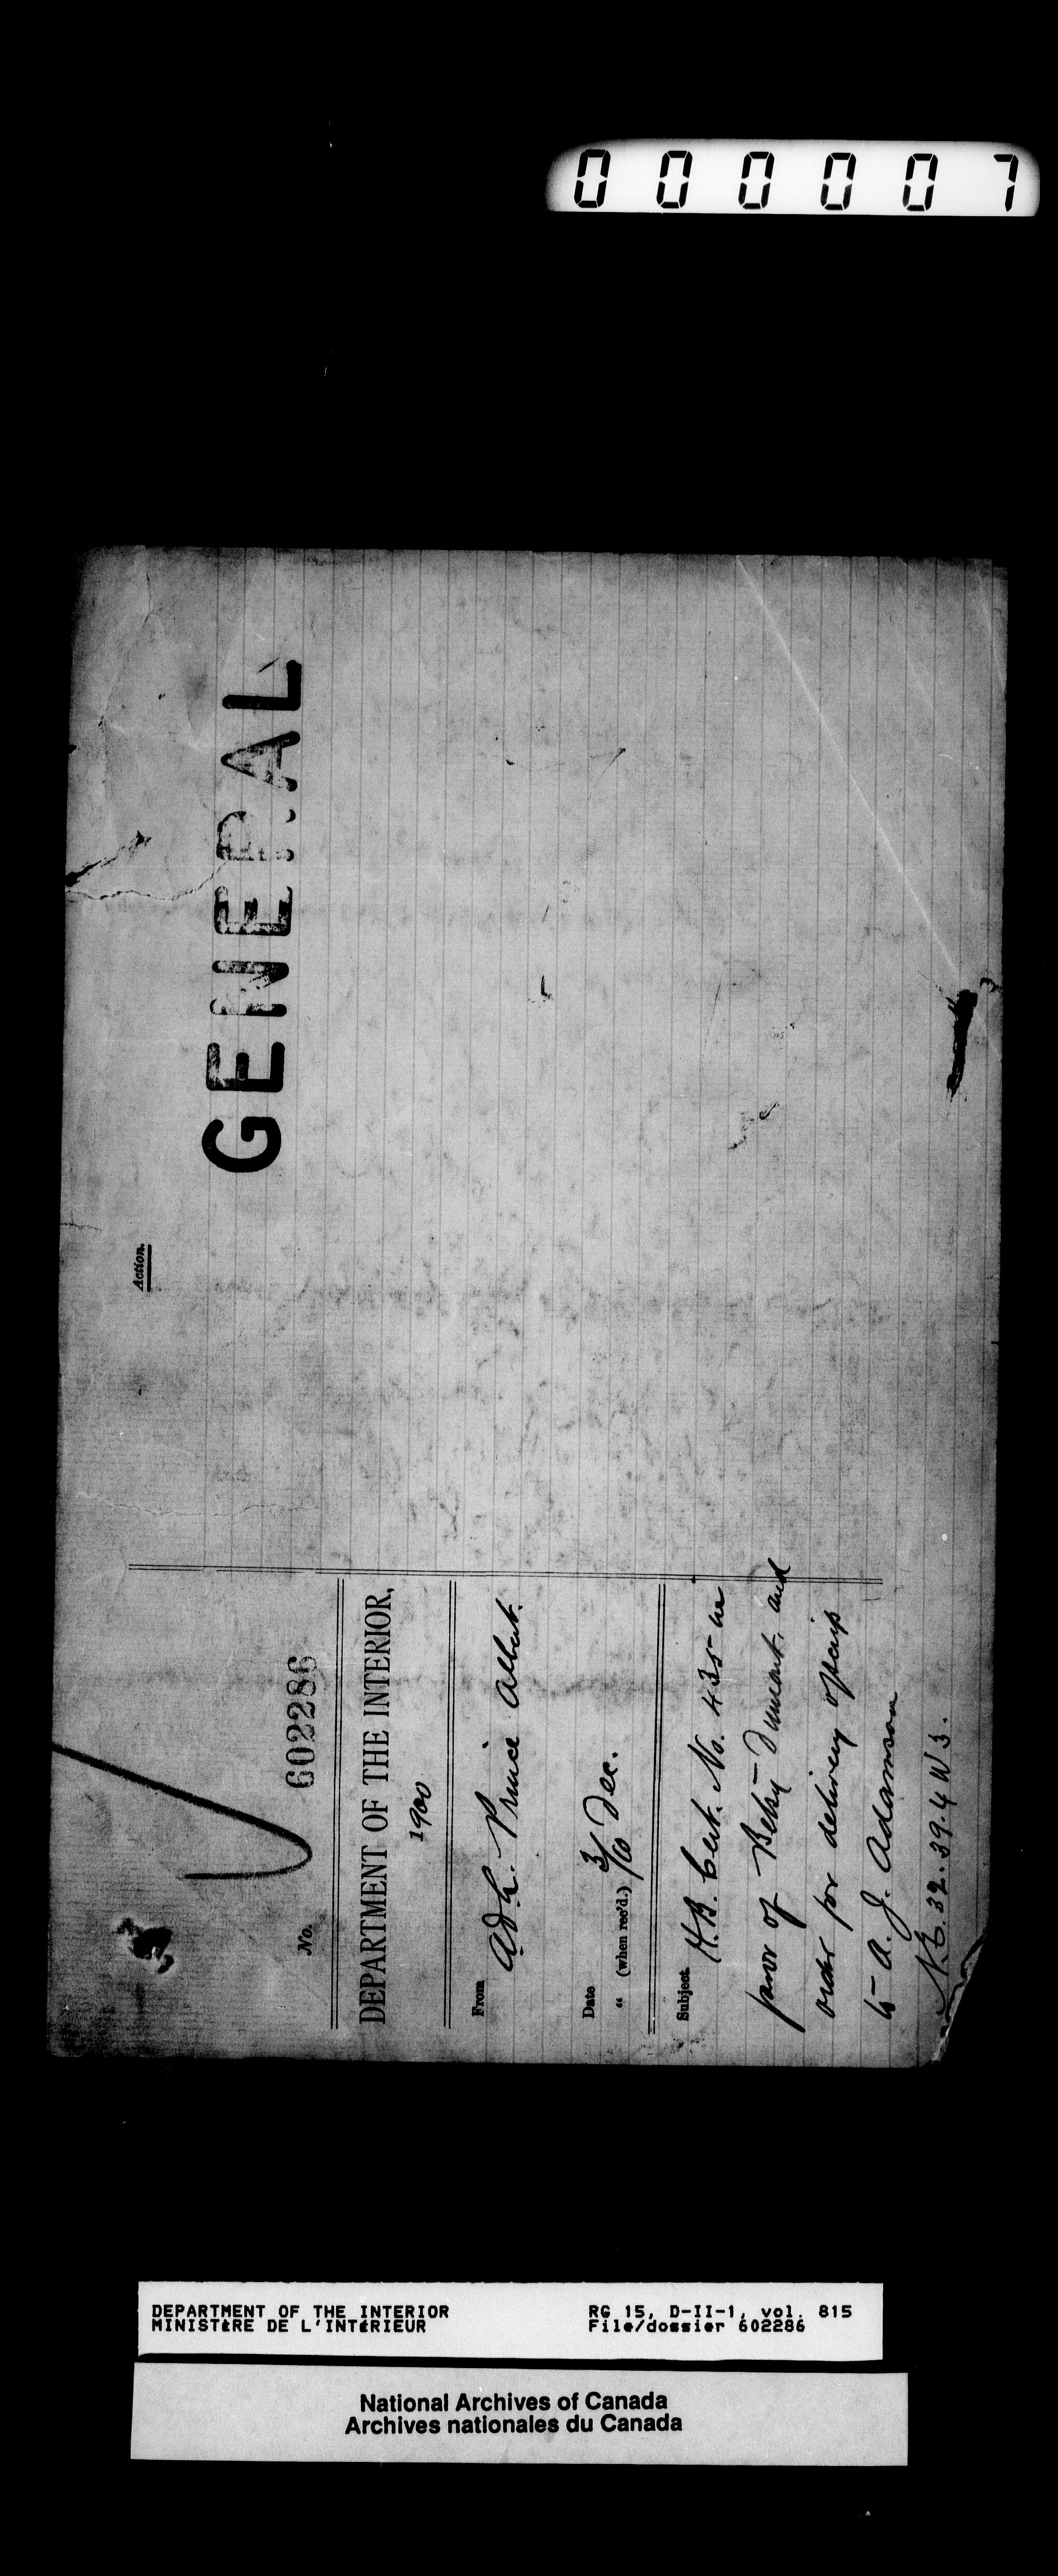 000007
Action.
GENERAL
No. 602286
DEPARTMENT OF THE INTERIOR,
1900
From A.D.L. Prince Albert.
Date 3/10 Dec.
" (when rec'd.)
Subject. H.B. Cert. No. 435 in
favor of Betsy Dumont, and
order for delivery of scrip
to A. J. Adamson
N.E. 32.39.4 W3.
DEPARTMENT OF THE INTERIOR
MINISTÈRE DE L'INTÉRIEUR
RG 15, D-II-1, vol. 815
File/dossier 602286
National Archives of Canada
Archives nationales du Canada